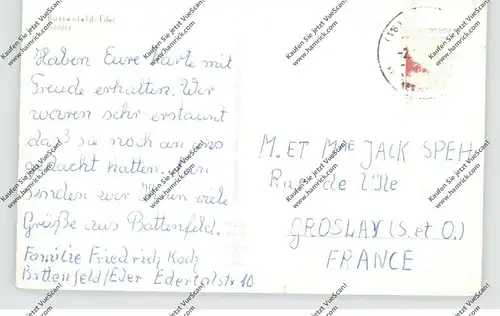 Battenfeld/Eder
Haben Eure Karte mit
Freude erhalten. Wir
waren sehr erstaunt
daß sie noch an uns
gedacht hatten. Nun
senden wir Ihnen viele
Grüße aus Battenfeld.
Familie Friedrich Koch
Battenfeld/Eder Edertalstr 10
M. ET MME JACK SPEH
Rue de l'Ile
GROSLAY (S. et O.)
FRANCE
(16)
Kaufen Sie jetzt VueScan!
www.hamrick.com!